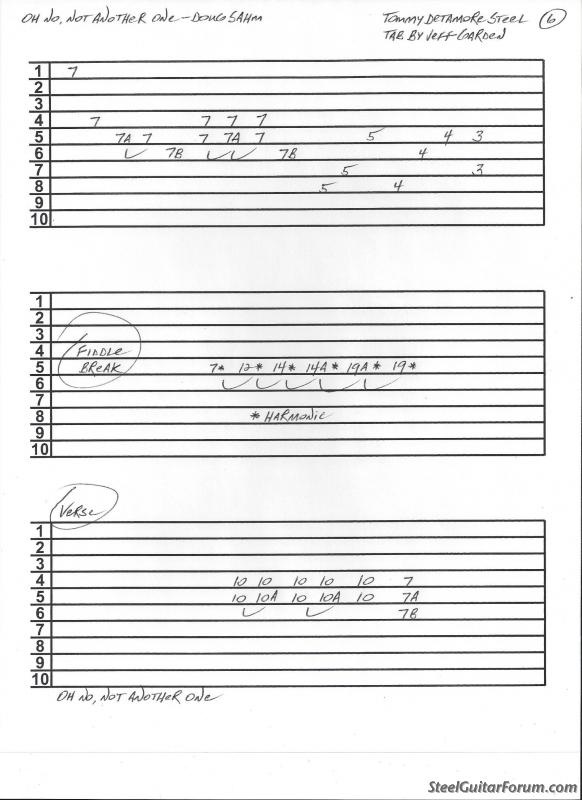 OH NO, NOT ANOTHER ONE - DOUG SAHM
TOMMY DETAMORE STEEL 6
TAB BY JEFF GARDEN
1 7
2
3
4 7 7 7 7
5 7A 7 7 7A 7 5 4 3
6 7B 7B 4
7 5 3
8 5 4
9
10
1
2
3
4
FIDDLE
BREAK
5 7* 12* 14* 14A* 19A* 19*
6
7
8 * HARMONIC
9
10
VERSE
1
2
3
4 10 10 10 10 10 7
5 10 10A 10 10A 10 7A
6 7B
7
8
9
10
OH NO, NOT ANOTHER ONE
SteelGuitarForum.com